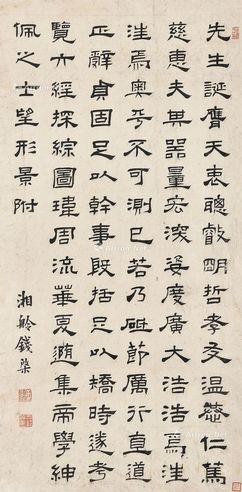 先生誕膺天衷聰叡明哲孝友溫恭仁篤
慈惠夫其器量宏深姿度廣大浩浩焉汪
汪焉奧乎不可測已若乃砥節厲行直道
正辭貞固足以幹事既括足以矯時遂考
覽六經探綜圖瑋周流華夏隨集帝學紳
佩之士望形景附
湘舲錢棨